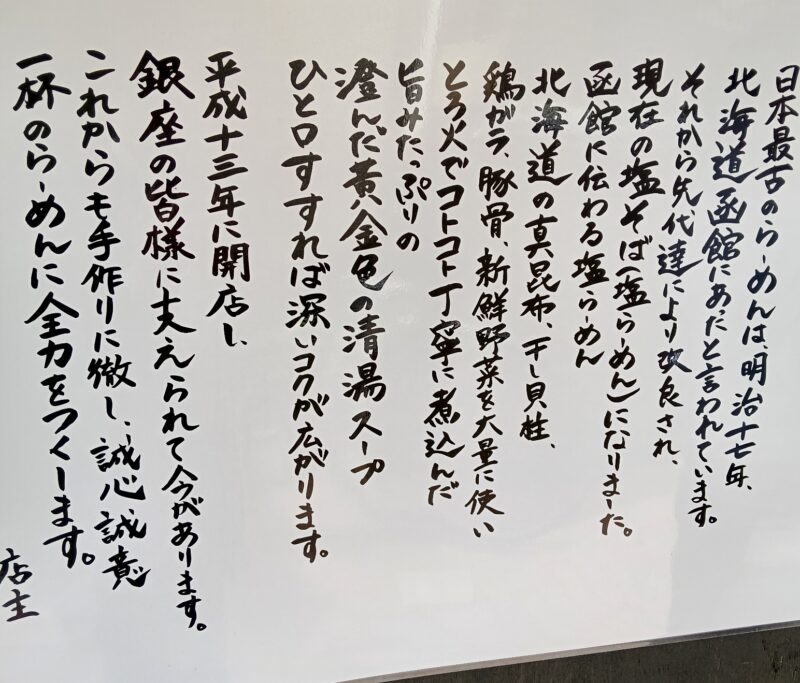 日本最古のらーめんは、明治十七年、
北海道函館にあったと言われています。
それから先代達により改良され、
現在の塩そば(塩らーめん)になりました。
函館に伝わる塩らーめん
北海道の真昆布、干し貝柱、
鶏がラ、豚骨、新鮮野菜を大量に使い
とろ火でコトコト丁寧に煮込んだ
旨みたっぷりの
澄んだ黄金色の清湯スープ
ひと口すすれば深いコクが広がります。
平成十三年に開店し、
銀座の皆様に支えられて今があります。
これからも手作りに徹し、誠心誠意
一杯のらーめんに全力をつくします。
店主